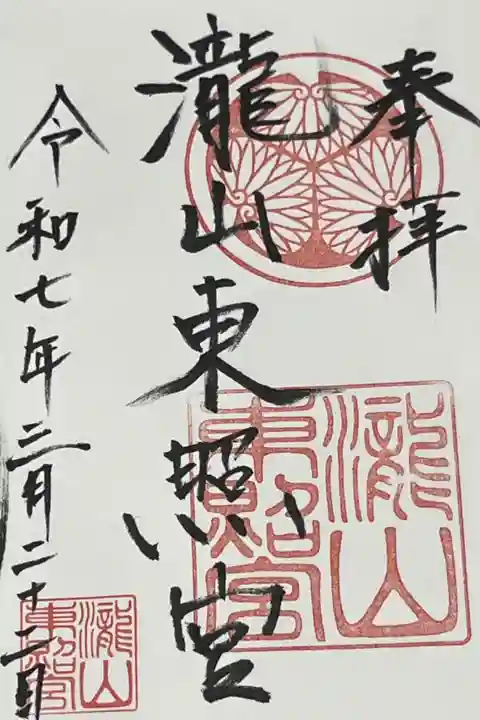 奉拝
瀧山東照宮
瀧山
東照宮
令和七年三月二十二日
瀧山
東照宮